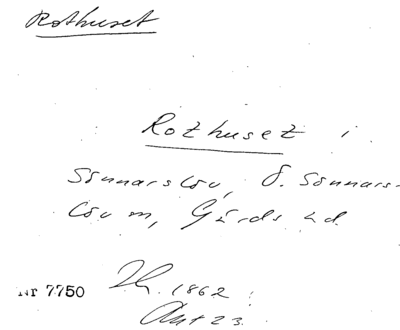 Rothuset
Rothuset i
Sönnarslöv, Ö. Sönnars-
löv m, Gärds hd.
Nr 7750 Th. 1862
Akt 23.